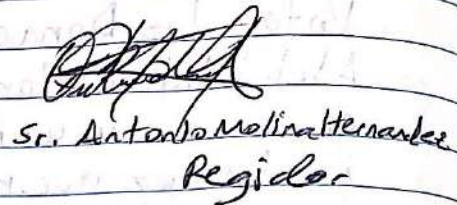 Sr. Antonio Molina Hernandez
Regidor